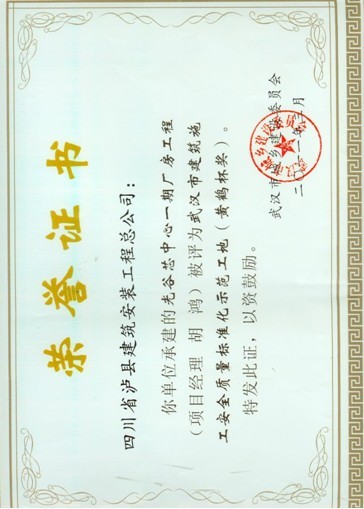 荣誉证书
四川省泸县建筑安装工程总公司：
你单位承建的光谷芯中心一期厂房工程
（项目经理 胡 鸿）被评为武汉市建筑施
工安全质量标准化示范工地（黄鹤杯奖）。
特发此证，以资鼓励。
武汉市城乡建设委员会
二〇一二年二月